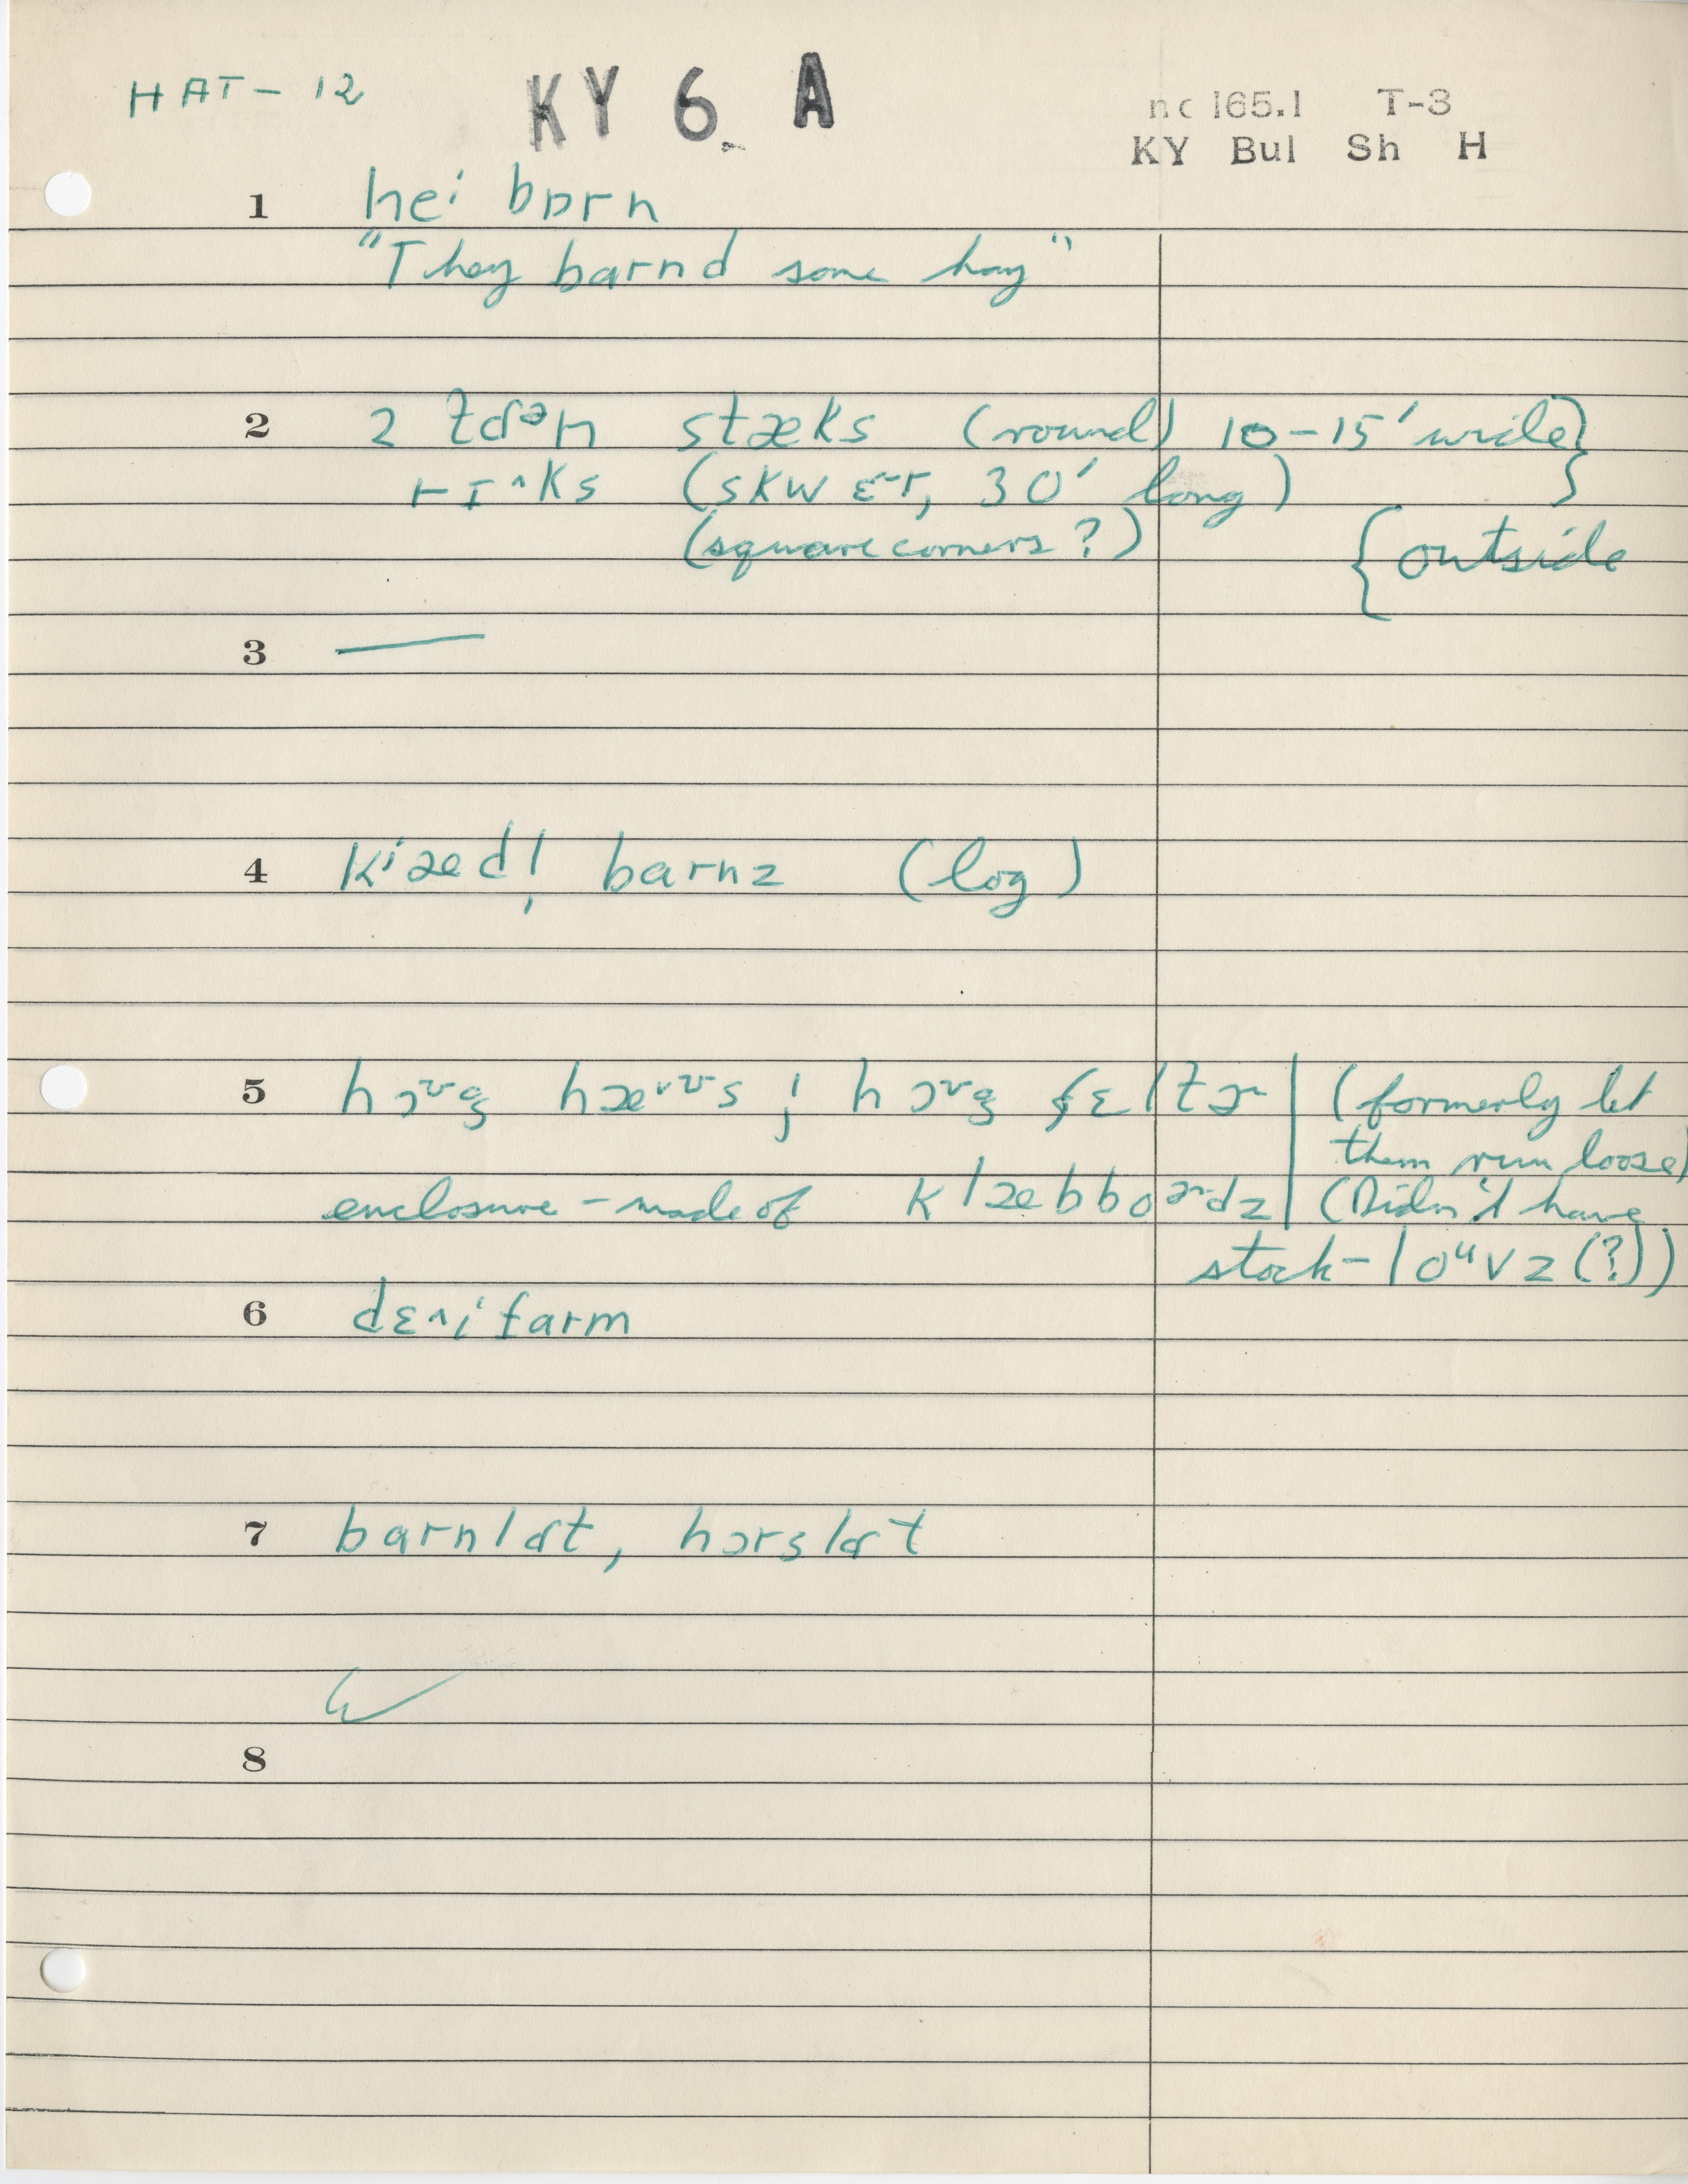 HAT - 12
KY 6 A
nc 165.1 T-3
KY Bul Sh H
1 hei bɒrn
"They barnd some hay"
2 2 stæks (round) 10-15' wide}
rɪ^ks (skwɛɚ, 30' long) }
(square corners ?) { outside
3 —
4 kiæd̩l barnz (log)
5 hɔᶹg hæᶹs ; hɔᶹg ʃɛltɚ | (formerly let
them run loose)
enclosure - made of klæbboɚdz | (Didn't have
stock - loᵘvz (?))
6 dɛ^ifarm
7 barnlɑt, hɔrslɑt
8